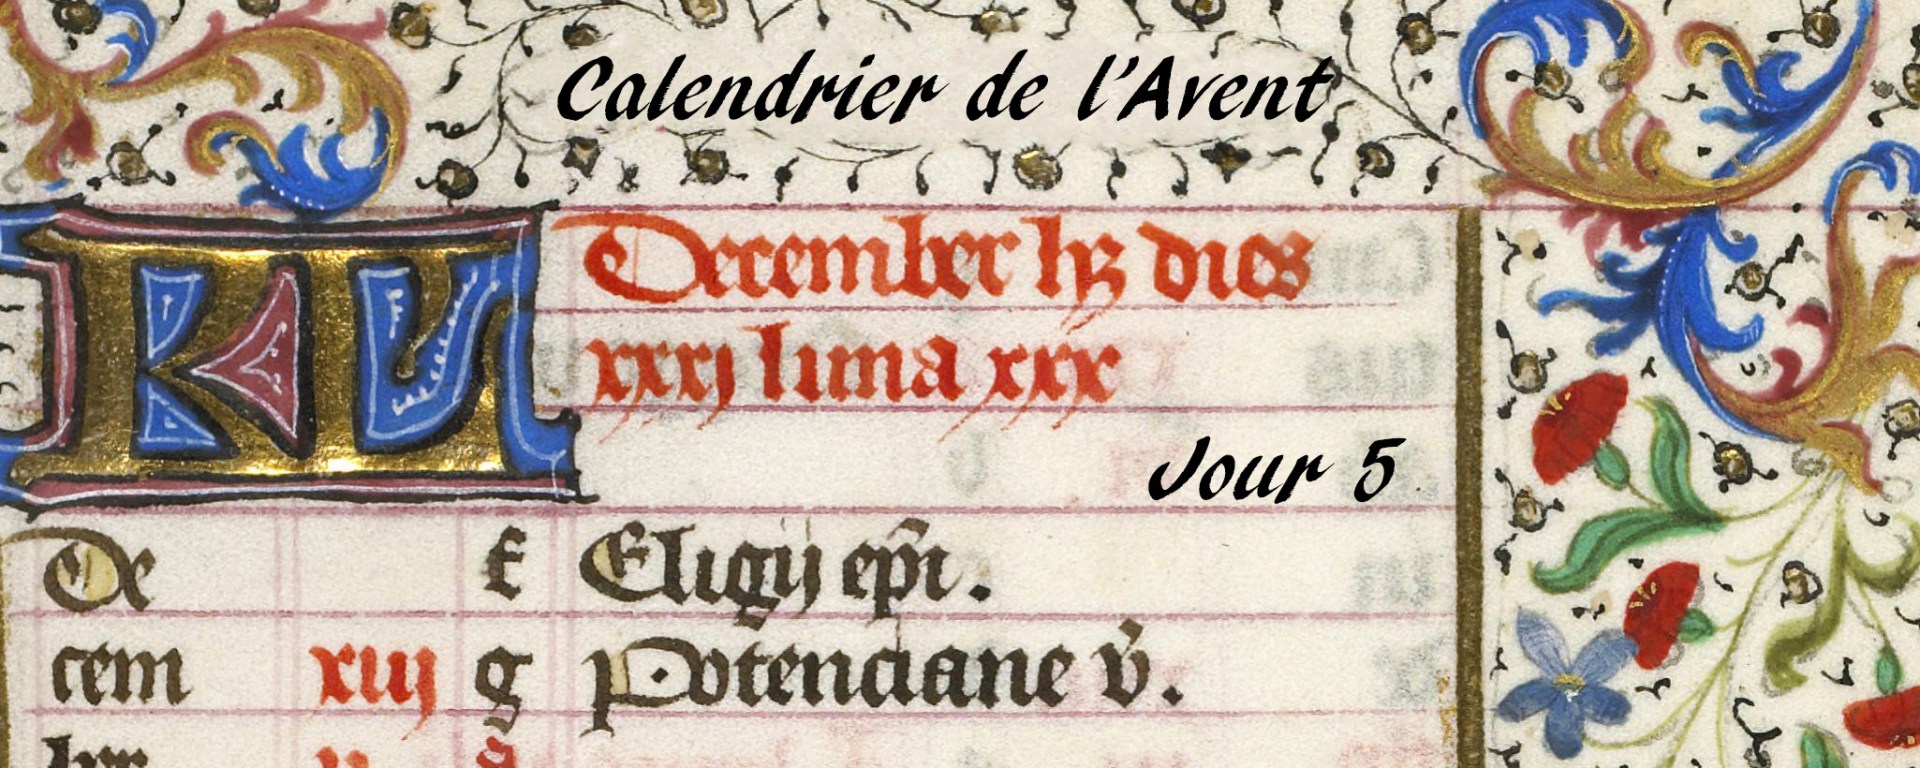 Calendrier de l'Avent
KL
December hʒ dies
xxxj luna xxx
Jour 5
De f Eligij epi.
cem xiij g Potenciane v.